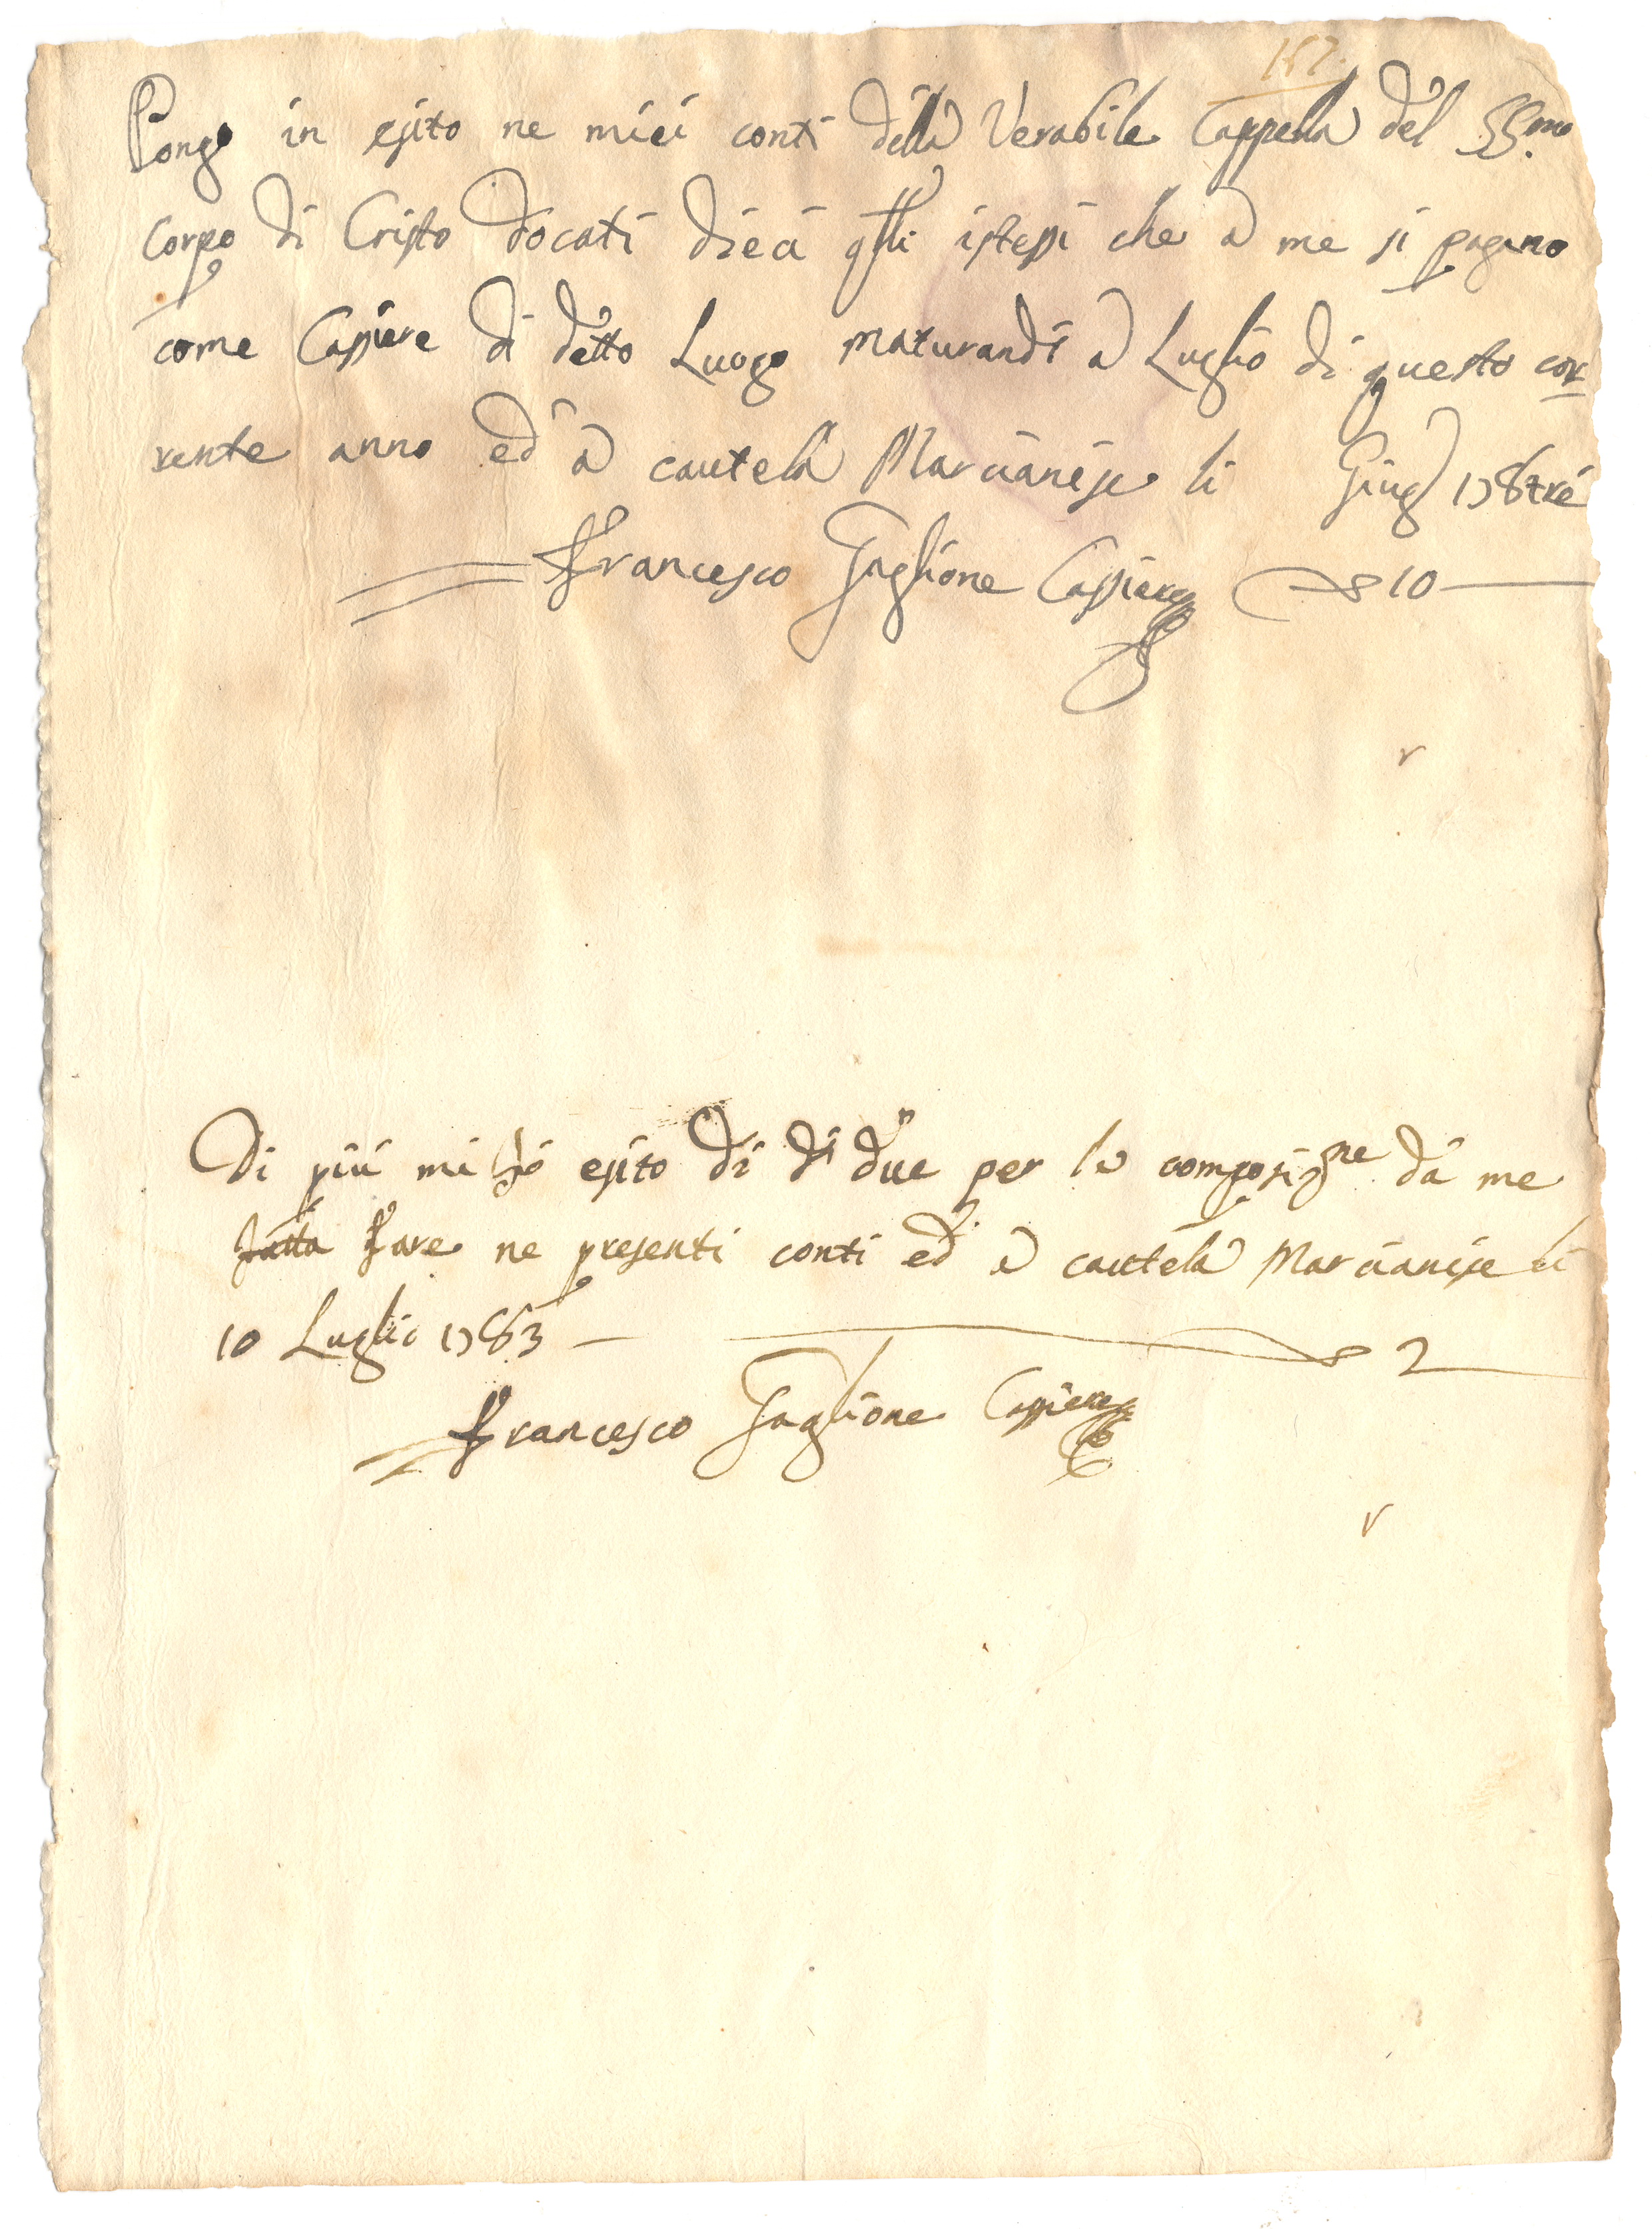 157.
Pongo in esito ne miei conti della Verabile Cappella del SS.mo
Corpo di Cristo docati dieci q̃lli istessi che a me si pagano
come Cassiere di detto Luogo maturandi a Luglio di questo cor
rente anno ed a cautela Marcianise li Giug 178tre
Francesco Gaglione Cassiere 10
Di più mi fò esito di dn due per la composizne da me
fatta fare ne presenti conti ed a cautela Marcianise li
10 Luglio 1783 — 2
Francesco Gaglione Cassiere